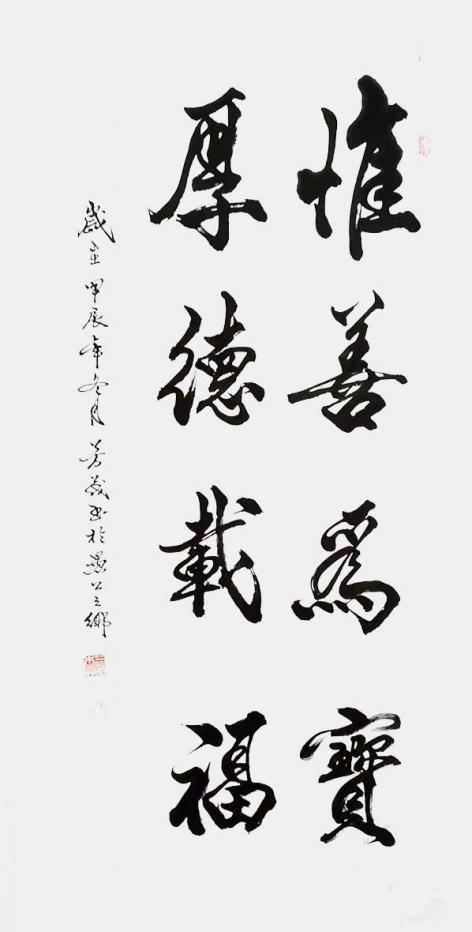 惟善為寶
厚德載福
歲在甲辰年冬月芳茂书於愚公之鄉